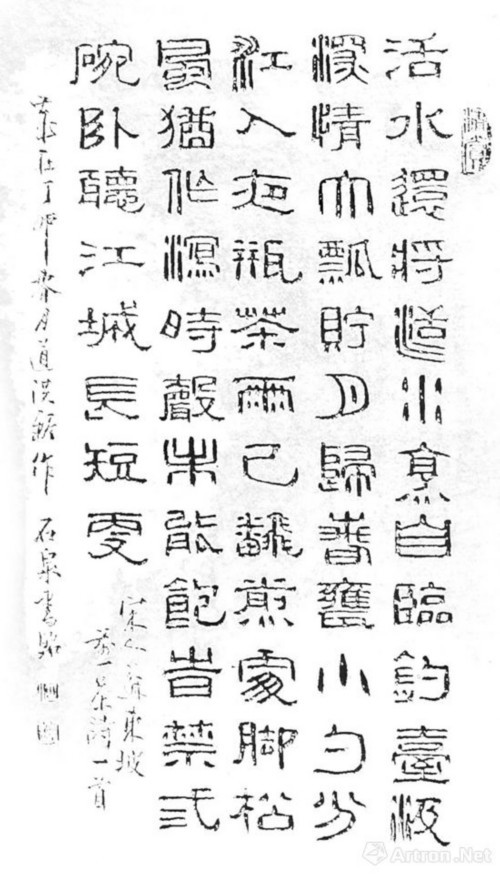 活水還將活火烹自臨釣臺汲
深情大瓢貯月歸春甕小勺分
江入夜瓶茶雨已翻煎處脚松
風猶作瀉時聲未能飽昔禁弍
碗卧聽江城長短更
宋人蘇東坡
茶詩一首
歲在丁卯春月道洪作 石泉書
Artron.Net